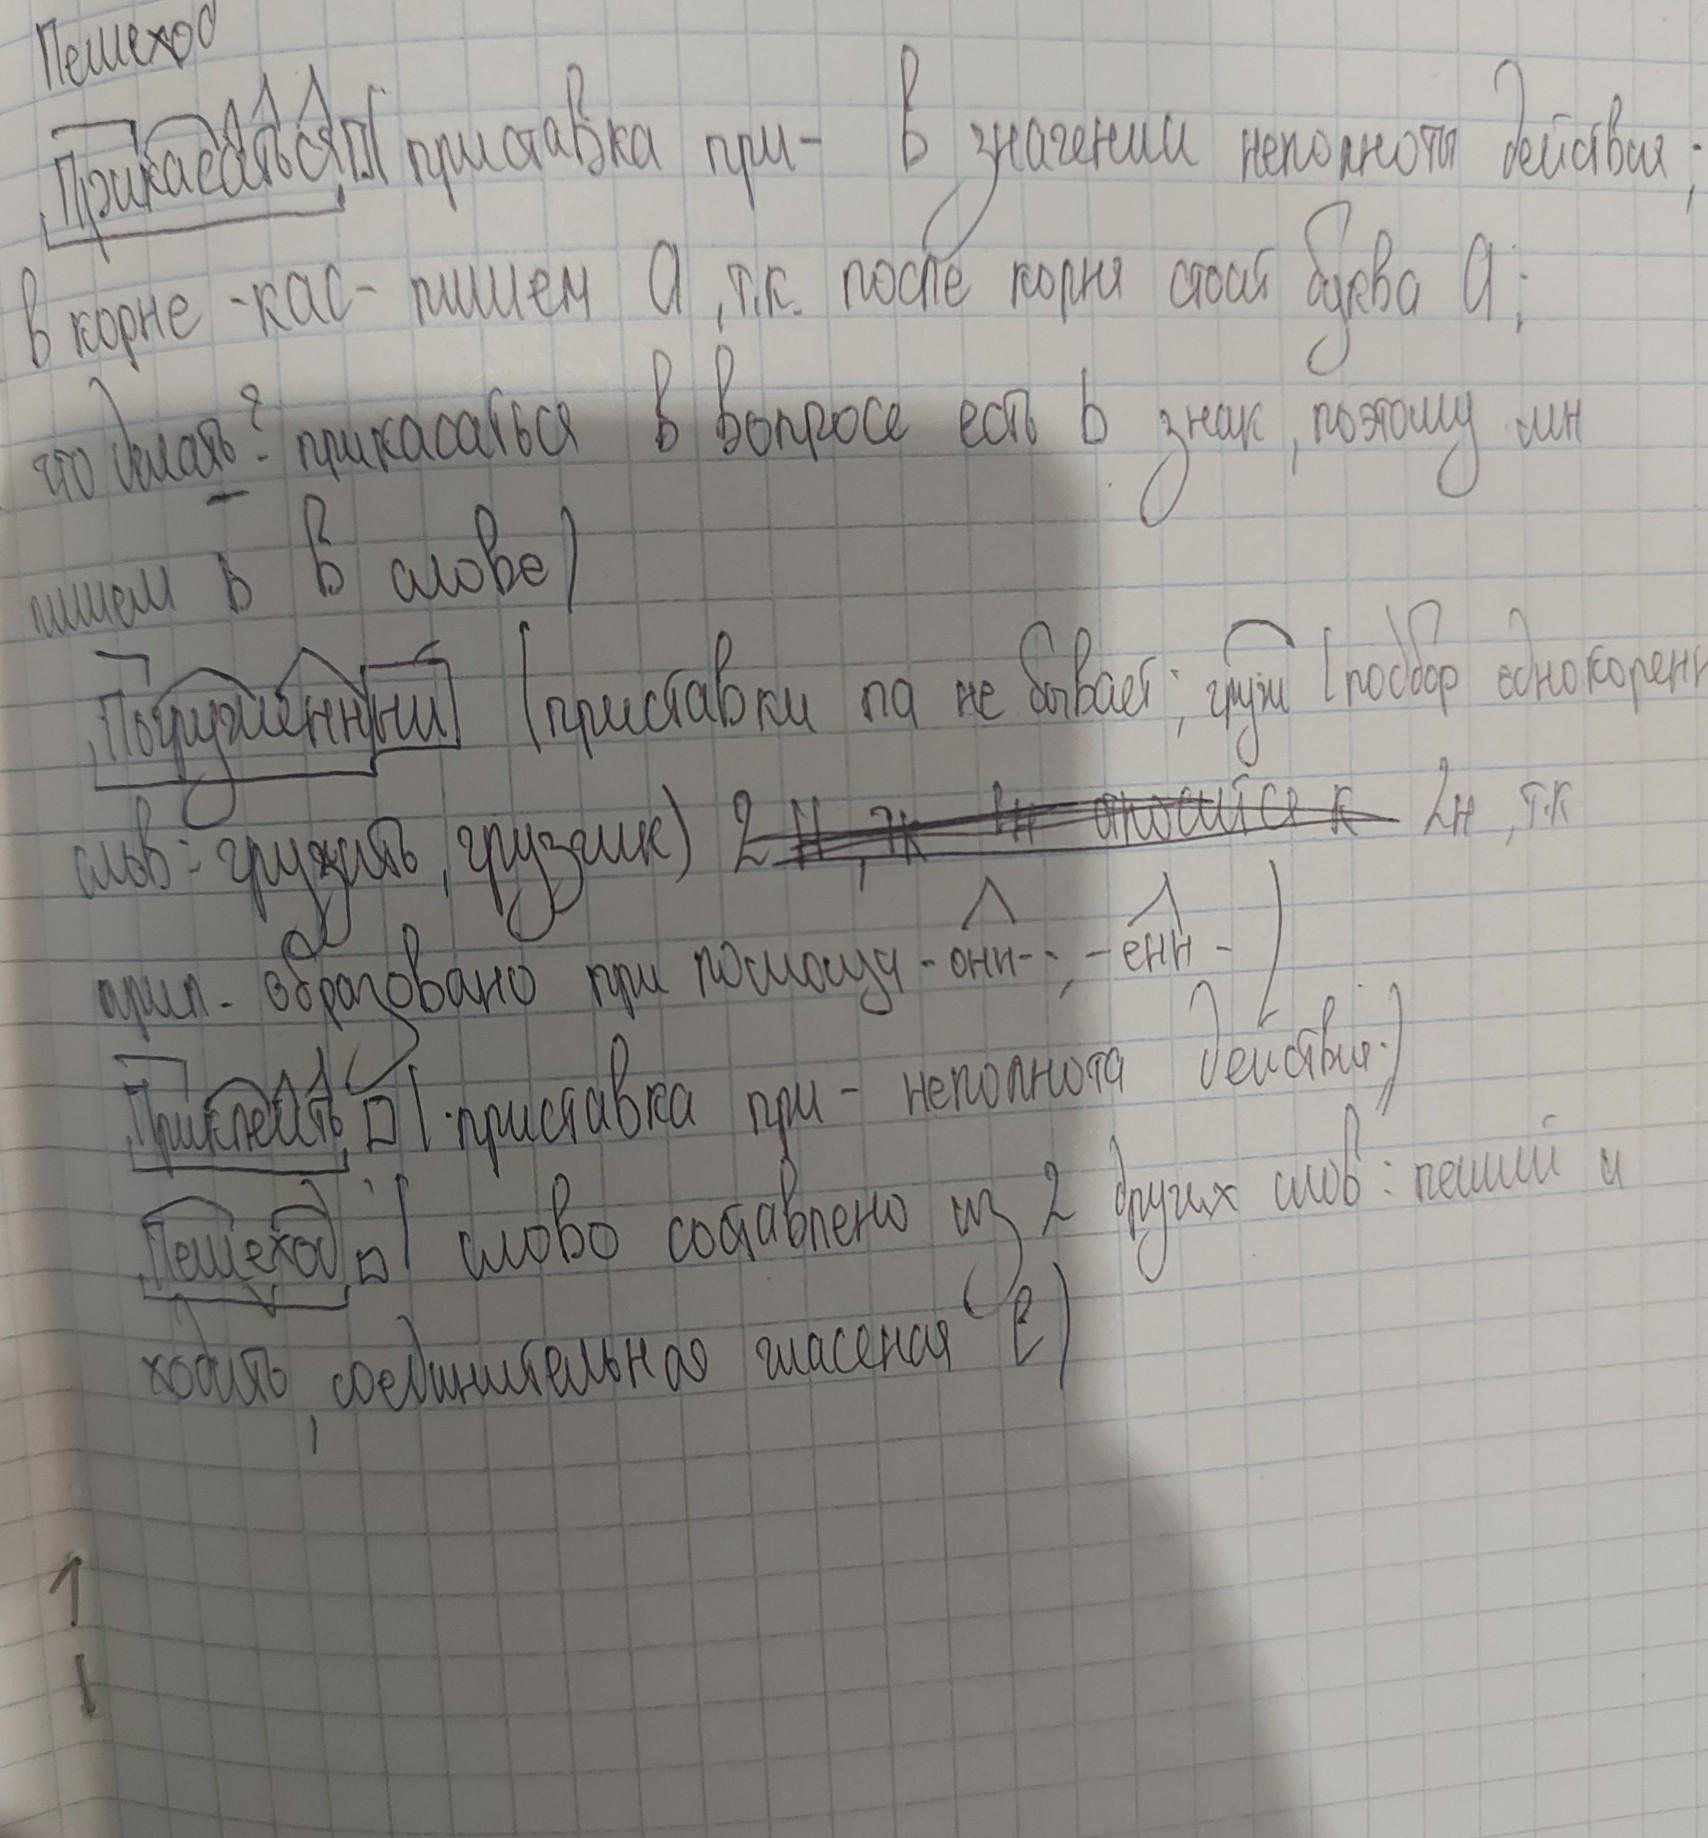 Пешеход
Прикасаться (приставка при- в значении неполноты действия;
в корне -кас- пишем а, т.к. после корня стоит буква а;
что делать? прикасаться в вопросе есть ь знак, поэтому мы
пишем ь в слове)
Погруженный (приставки па не бывает; груж (подбор однокорен
слов: грузить, грузчик) 2 н, тк 2н относится к 2н, т.к
прил. образовано при помощи -онн-; -енн-)
Приклеить (приставка при- неполнота действия.)
Пешеход ( слово составлено из 2 других слов: пеший и
ходить, соединительная гласеная е)